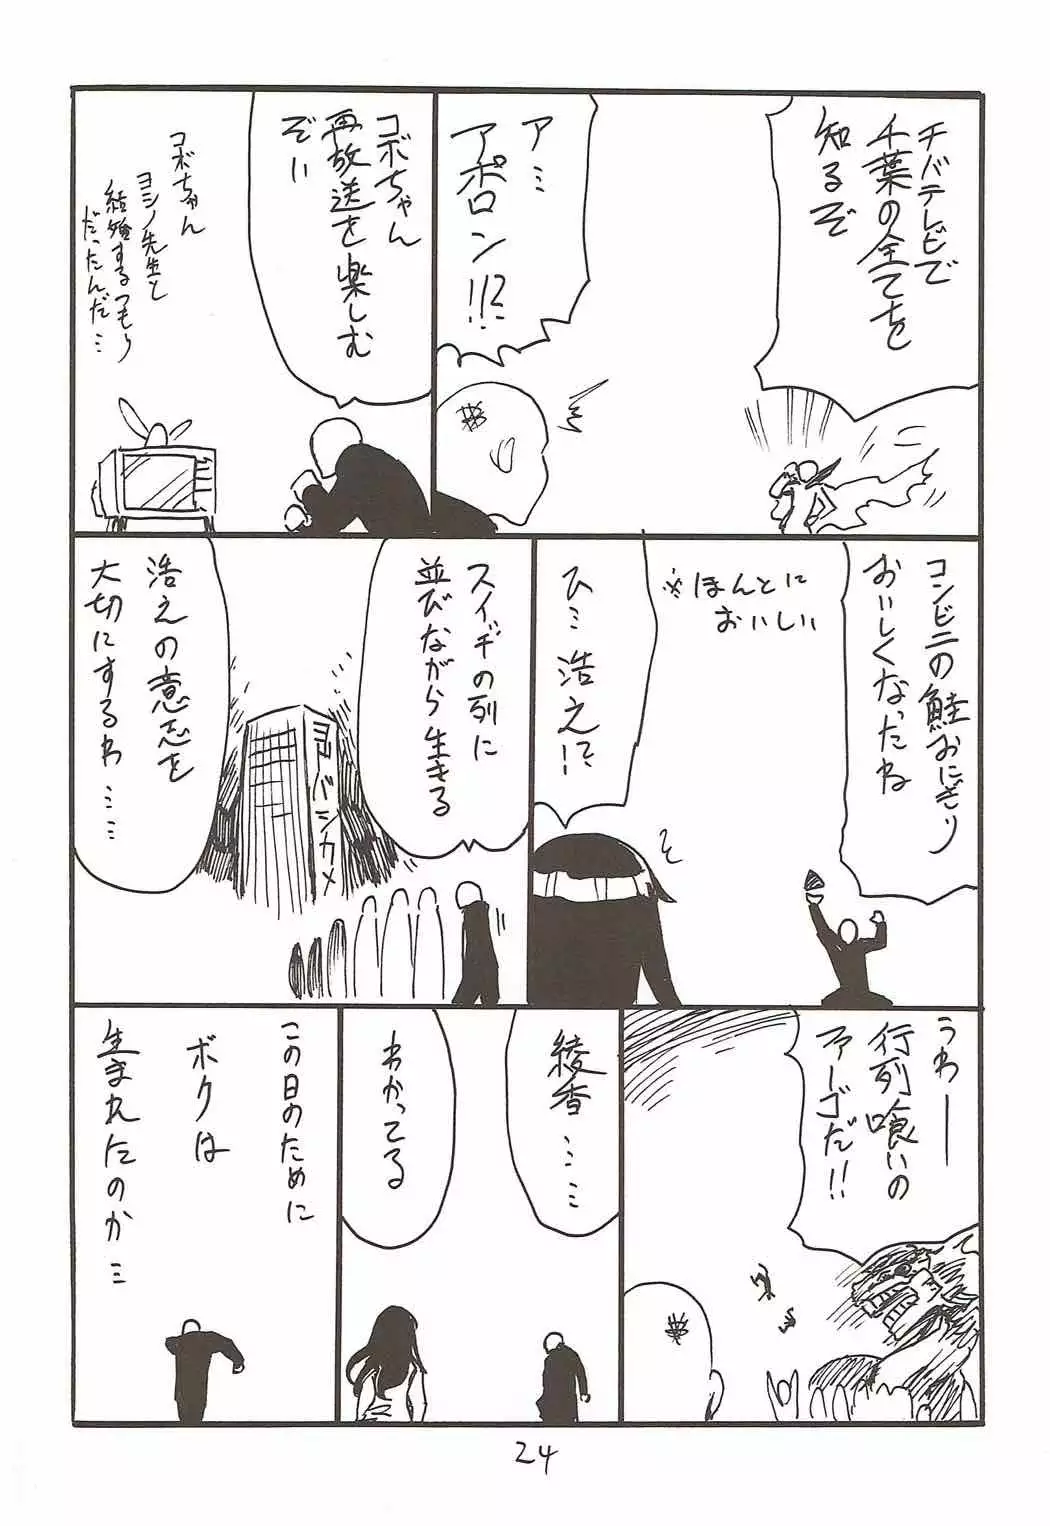 チバテレビで
千葉の全てを
知るぞ
ア…
アポロン!!?
コボちゃん
再放送を楽しむ
ぞい
コボちゃん
ヨシノ先生と
結婚するつもり
だったんだ…
コンビニの鮭おにぎり
おいしくなったね
※ほんとに
おいしい
ひ… 浩え!?
スイッチの列に
並びながら生きる
ヨドバシカメ
浩えの意志を
大切にするわ……
うわー
行列喰いの
ファーゴだ!!
綾香……
わかってる
この日のために
ボクは
生まれたのか…
24